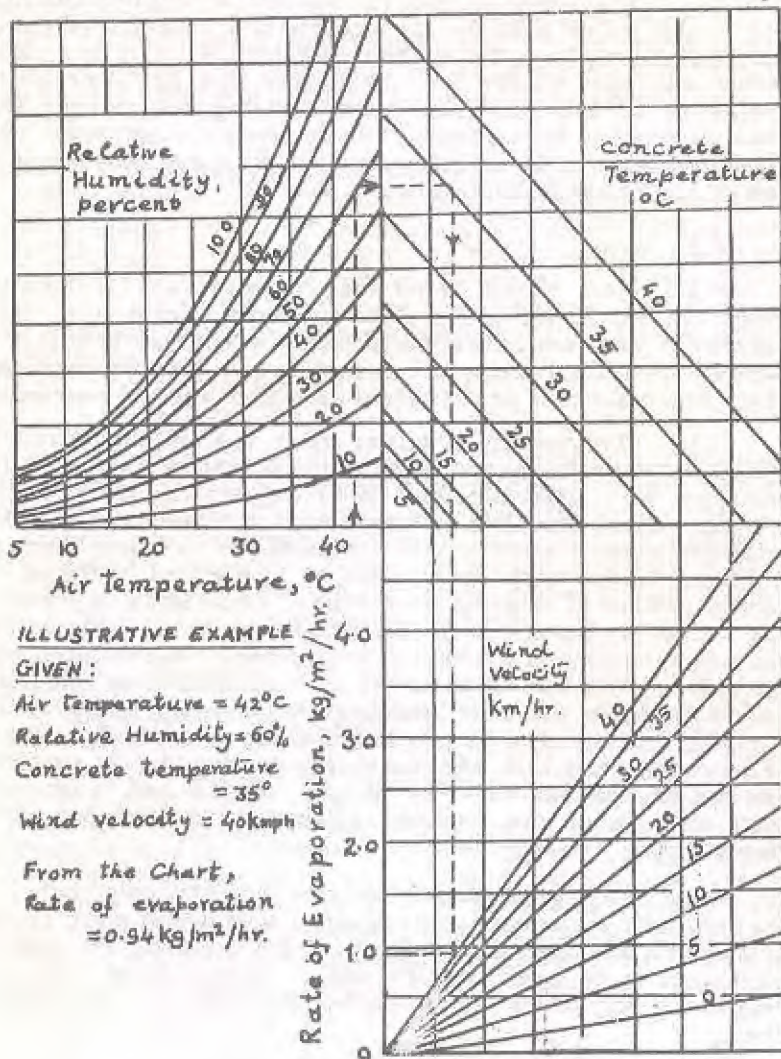 Relative
Humidity,
percent
100
90
80
70
60
50
40
30
20
10
Concrete
Temperature
°C
40
35
30
25
20
15
10
5
5 10 20 30 40
Air temperature, °C
ILLUSTRATIVE EXAMPLE
GIVEN:
Air temperature = 42°C
Relative Humidity = 60%
Concrete temperature
= 35°
Wind velocity = 40kmph
From the Chart,
Rate of evaporation
= 0.94 kg/m²/hr.
Rate of Evaporation, kg/m²/hr.
4.0
3.0
2.0
1.0
0
Wind
velocity
km/hr.
40
35
30
25
20
15
10
5
0